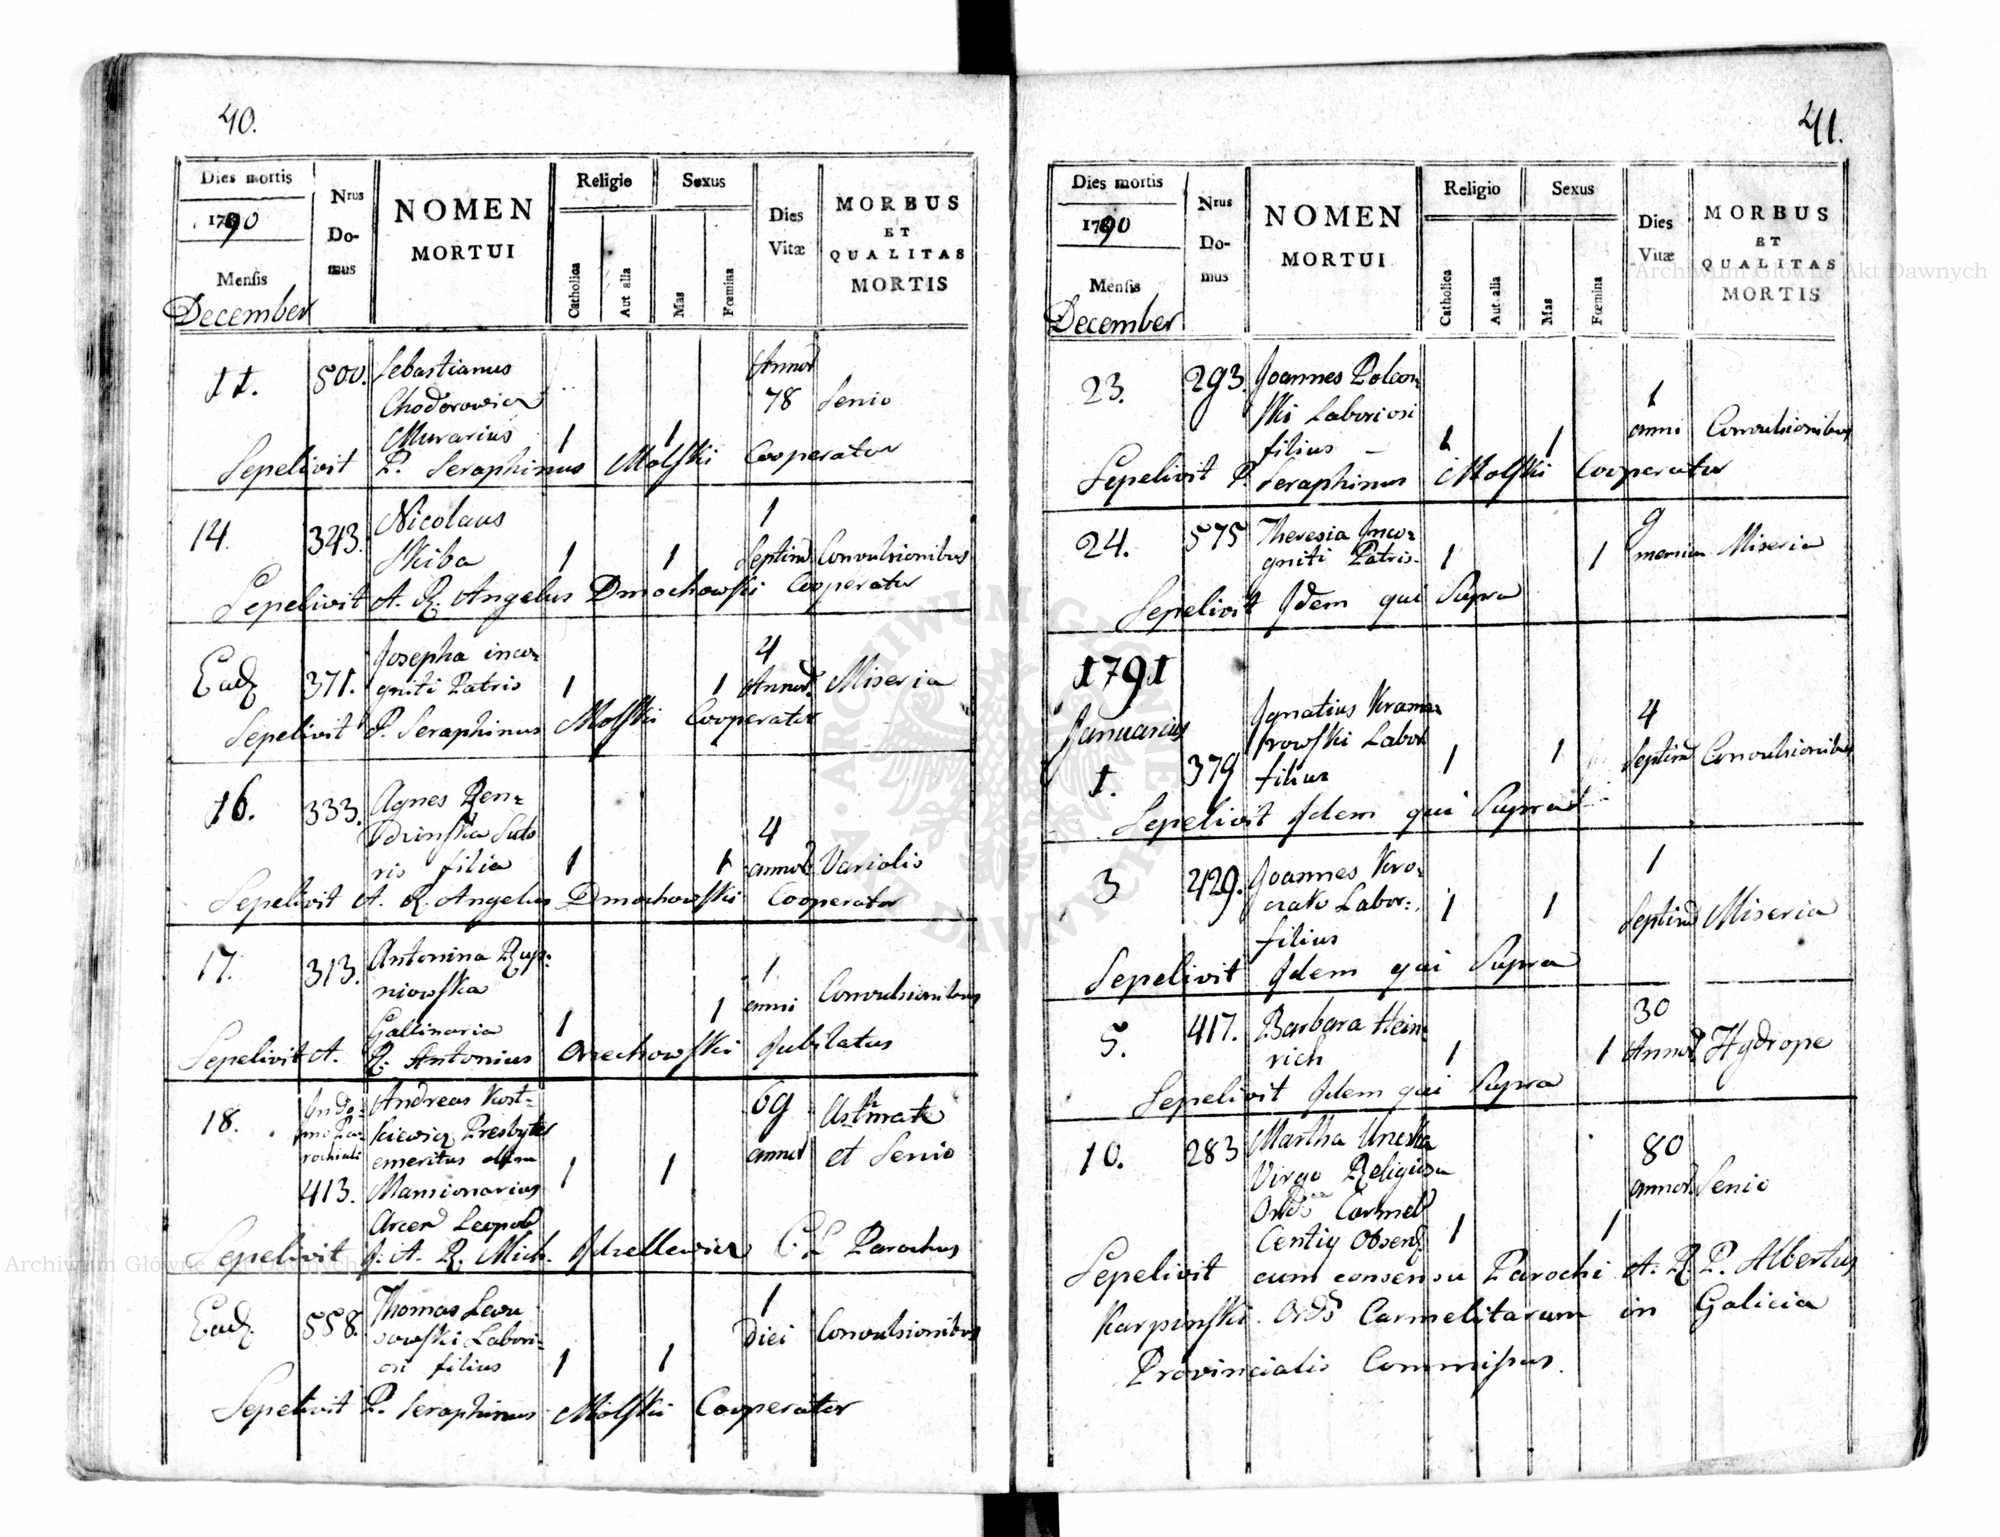 40.
Dies mortis
1790
Mensis
December
Nrus
Do-
mus
NOMEN
MORTUI
Religio
Catholica
Aut alia
Sexus
Mas
Fœmina
Dies
Vitæ
MORBUS
ET
QUALITAS
MORTIS
11. 500. Sebastianus
Chodorowicz
Murarius 1 1 78 Senio
Sepelivit P. Seraphinus Molski Cooperator
14. 343. Nicolaus
Skiba 1 1 1 Septim Convulsionibus
Sepelivit A. R. Angelus Dmochowski Cooperator
Ead 371. Josepha inco=
gniti Patris 1 1 4 Annor Miseria
Sepelivit P. Seraphinus Molski Cooperator
16. 333. Agnes Ren=
dzinska Suto
ris filia 1 1 4 annor Variolis
Sepelivit A. R. Angelus Dmochowski Cooperator
17. 313. Antonina Rup=
niowska
Gallinaria 1 1 1 anni Convulsionibus
Sepelivit A. R. Antonius Orzechowski Jubilatus
18. In Do-
mo Pa-
rochiali
413. Andreas Kost=
kiewicz Presbyter
emeritus olim
Mansionarius 1 1 69 annor Asthmate
et Senio
Sepelivit A. R. Mich. Parochus
Ead. 558. Thomas
Labori=
osi filius 1 1 1 Diei Convulsionibus
Sepelivit P. Seraphinus Molski Cooperator
41.
Dies mortis
1790
Mensis
December
Nrus
Do-
mus
NOMEN
MORTUI
Religio
Catholica
Aut alia
Sexus
Mas
Fœmina
Dies
Vitæ
MORBUS
ET
QUALITAS
MORTIS
23. 293. Joannes Polan=
ski Laboriosi
filius 1 1 1 anni Convulsionibus
Sepelivit P. Seraphinus Molski Cooperator
24. 575 Theresia Inco=
gniti Patris 1 1 9 Miseria
Sepelivit Idem qui Supra
1791
Januarius
1. 379 Ignatius Krama=
rowski Labor
filius 1 1 4 Septim Convulsionibus
Sepelivit Idem qui Supra
3 429. Joannes Kro=
Labor=
filius 1 1 1 Septim Miseria
Sepelivit Idem qui Supra
5. 417. Barbara Hein=
rich 1 1 30 Annor Hydrope
Sepelivit Idem qui Supra
10. 283 Martha
Virgo Religiosa
Ord Carmel
1 1 80 annor Senio
Sepelivit cum consensu Parochi A. R. P. Albertus
Karpinski Ords Carmelitarum in Galicia
Provincialis Commissus.
ARCHIWUM GŁÓWNE AKT DAWNYCH
Archiwum Główne Akt Dawnych
Archiwum Główne Akt Dawnych